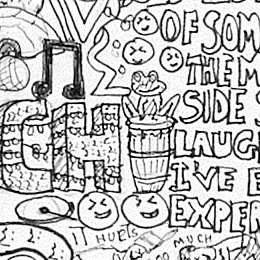 OF SOM
THE M
SIDE S
LAUG
I'VE E
EXPER
IT HURTS
SO MUCH